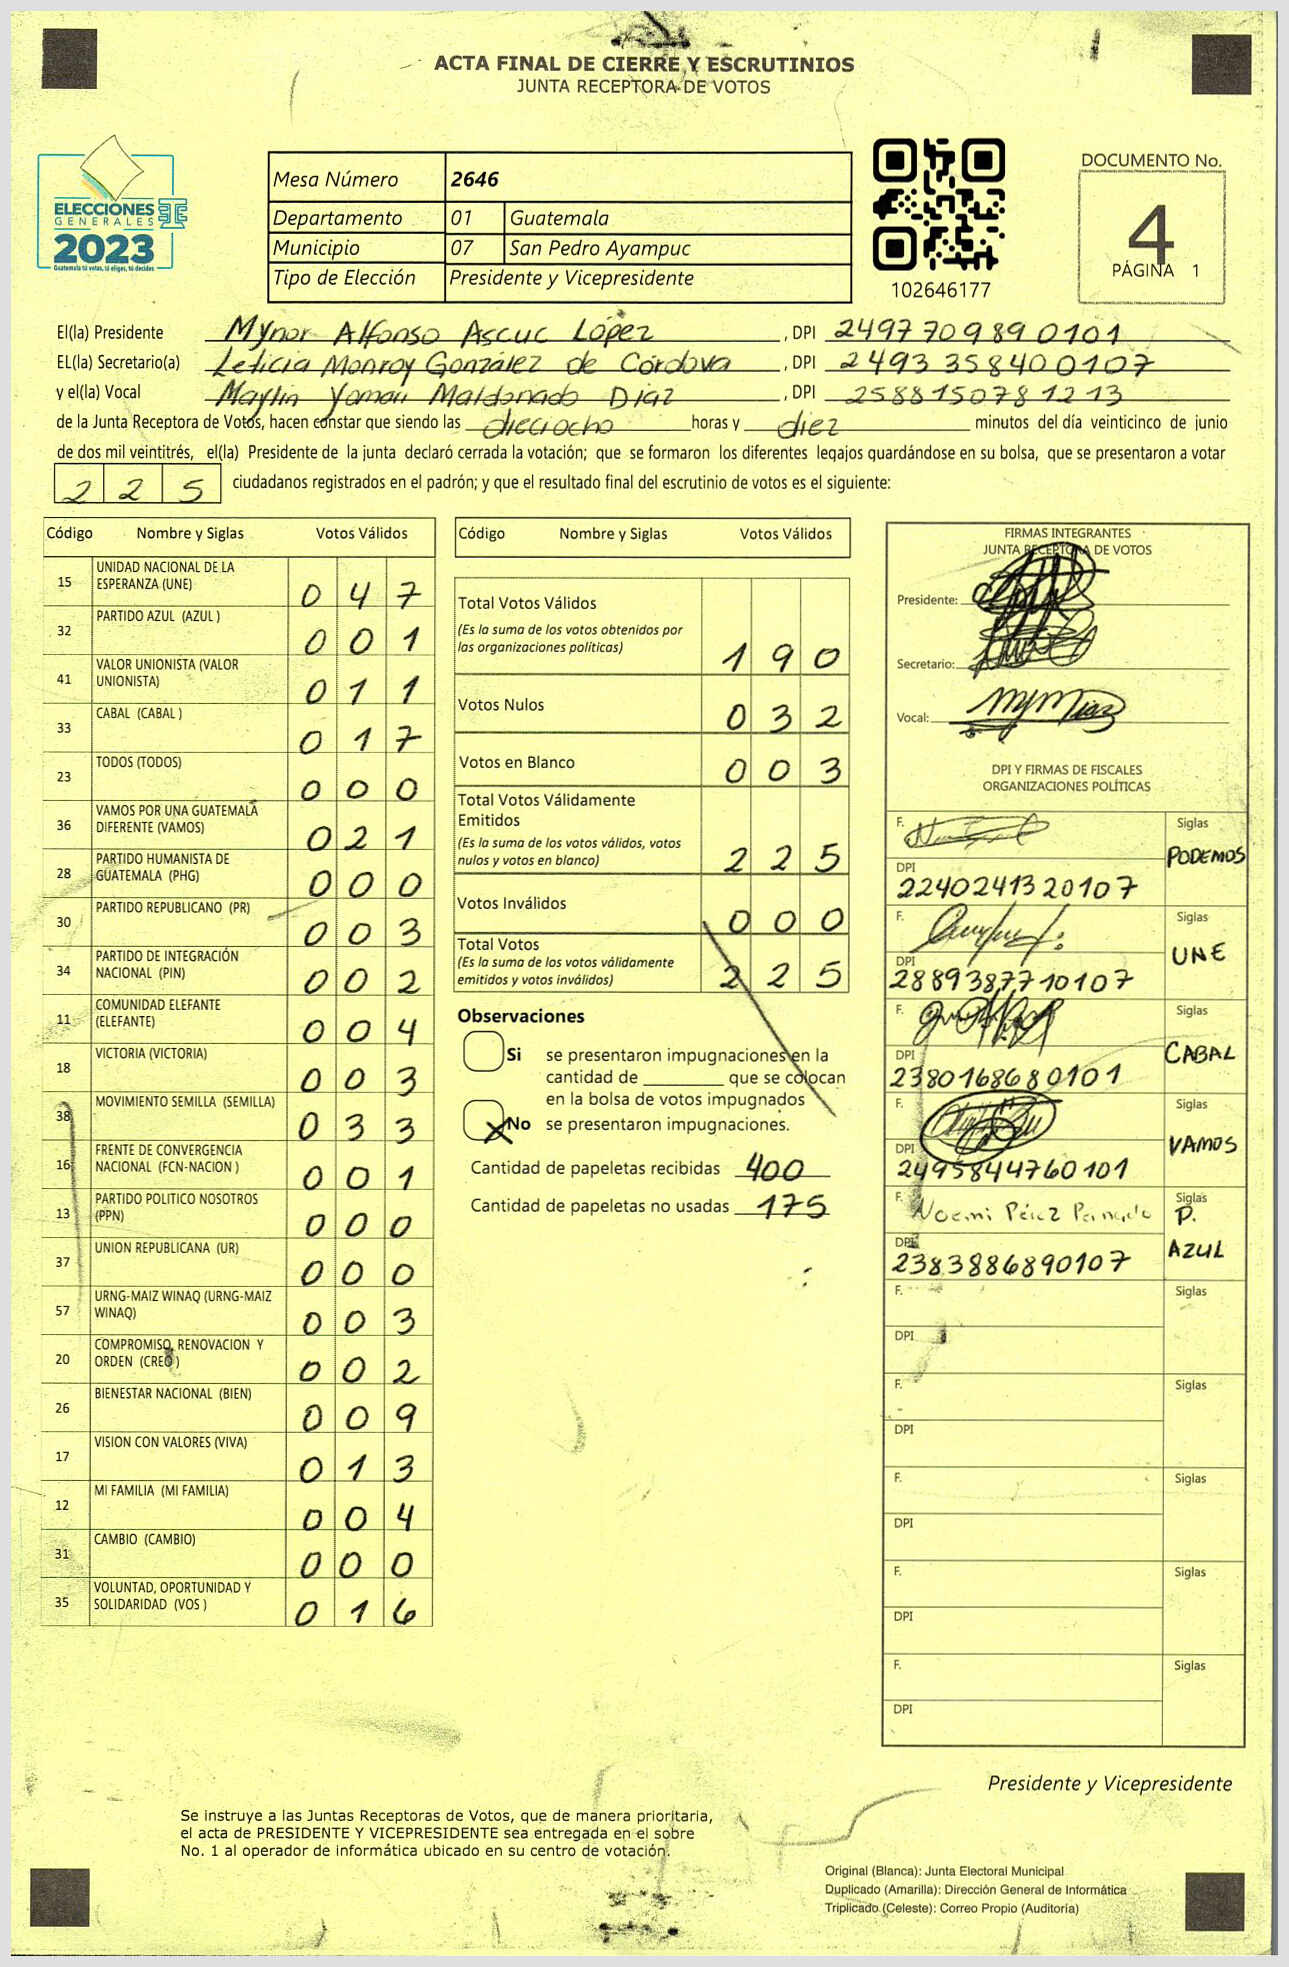 ACTA FINAL DE CIERRE Y ESCRUTINIOS
JUNTA RECEPTORA DE VOTOS
ELECCIONES
GENERALES
2023
Guatemala tú votas, tú eliges, tú decides
Mesa Número 2646
Departamento 01 Guatemala
Municipio 07 San Pedro Ayampuc
Tipo de Elección Presidente y Vicepresidente
102646177
DOCUMENTO No.
4
PÁGINA 1
El(la) Presidente Mynor Alfonso Ascuc López, DPI 2497709890101
EL(la) Secretario(a) Leticia Monroy González de Córdova, DPI 2493358400107
y el(la) Vocal Maylin Yomari Maldonado Diaz, DPI 2588150781213
de la Junta Receptora de Votos, hacen constar que siendo las dieciocho horas y diez minutos del día veinticinco de junio
de dos mil veintitrés, el(la) Presidente de la junta declaró cerrada la votación; que se formaron los diferentes legajos guardándose en su bolsa, que se presentaron a votar
225 ciudadanos registrados en el padrón; y que el resultado final del escrutinio de votos es el siguiente:
Código Nombre y Siglas Votos Válidos
15 UNIDAD NACIONAL DE LA ESPERANZA (UNE) 047
32 PARTIDO AZUL (AZUL ) 001
41 VALOR UNIONISTA (VALOR UNIONISTA) 011
33 CABAL (CABAL ) 017
23 TODOS (TODOS) 000
36 VAMOS POR UNA GUATEMALA DIFERENTE (VAMOS) 021
28 PARTIDO HUMANISTA DE GUATEMALA (PHG) 000
30 PARTIDO REPUBLICANO (PR) 003
34 PARTIDO DE INTEGRACIÓN NACIONAL (PIN) 002
11 COMUNIDAD ELEFANTE (ELEFANTE) 004
18 VICTORIA (VICTORIA) 003
38 MOVIMIENTO SEMILLA (SEMILLA) 033
16 FRENTE DE CONVERGENCIA NACIONAL (FCN-NACION ) 001
13 PARTIDO POLITICO NOSOTROS (PPN) 000
37 UNION REPUBLICANA (UR) 000
57 URNG-MAIZ WINAQ (URNG-MAIZ WINAQ) 003
20 COMPROMISO, RENOVACION Y ORDEN (CREO ) 002
26 BIENESTAR NACIONAL (BIEN) 009
17 VISION CON VALORES (VIVA) 013
12 MI FAMILIA (MI FAMILIA) 004
31 CAMBIO (CAMBIO) 000
35 VOLUNTAD, OPORTUNIDAD Y SOLIDARIDAD (VOS ) 016
Código Nombre y Siglas Votos Válidos
Total Votos Válidos 190
(Es la suma de los votos obtenidos por
las organizaciones políticas)
Votos Nulos 032
Votos en Blanco 003
Total Votos Válidamente
Emitidos
(Es la suma de los votos válidos, votos
nulos y votos en blanco) 225
Votos Inválidos 000
Total Votos
(Es la suma de los votos válidamente
emitidos y votos inválidos) 225
Observaciones
Si se presentaron impugnaciones en la
cantidad de ________ que se colocan
en la bolsa de votos impugnados
X No se presentaron impugnaciones.
Cantidad de papeletas recibidas 400
Cantidad de papeletas no usadas 175
FIRMAS INTEGRANTES
JUNTA RECEPTORA DE VOTOS
Presidente:
Secretario:
Vocal:
DPI Y FIRMAS DE FISCALES
ORGANIZACIONES POLÍTICAS
F. Siglas
PODEMOS
DPI
2240241320107
F. Siglas
UNE
DPI
2889387710107
F. Siglas
CABAL
DPI
2380168680101
F. Siglas
VAMOS
DPI
2495844760101
F. Noemi Pérez Siglas
P.
AZUL
DPI
2383886890107
F. Siglas
DPI
F. Siglas
DPI
F. Siglas
DPI
F. Siglas
DPI
F. Siglas
DPI
Presidente y Vicepresidente
Se instruye a las Juntas Receptoras de Votos, que de manera prioritaria,
el acta de PRESIDENTE Y VICEPRESIDENTE sea entregada en el sobre
No. 1 al operador de informática ubicado en su centro de votación.
Original (Blanca): Junta Electoral Municipal
Duplicado (Amarilla): Dirección General de Informática
Triplicado (Celeste): Correo Propio (Auditoría)